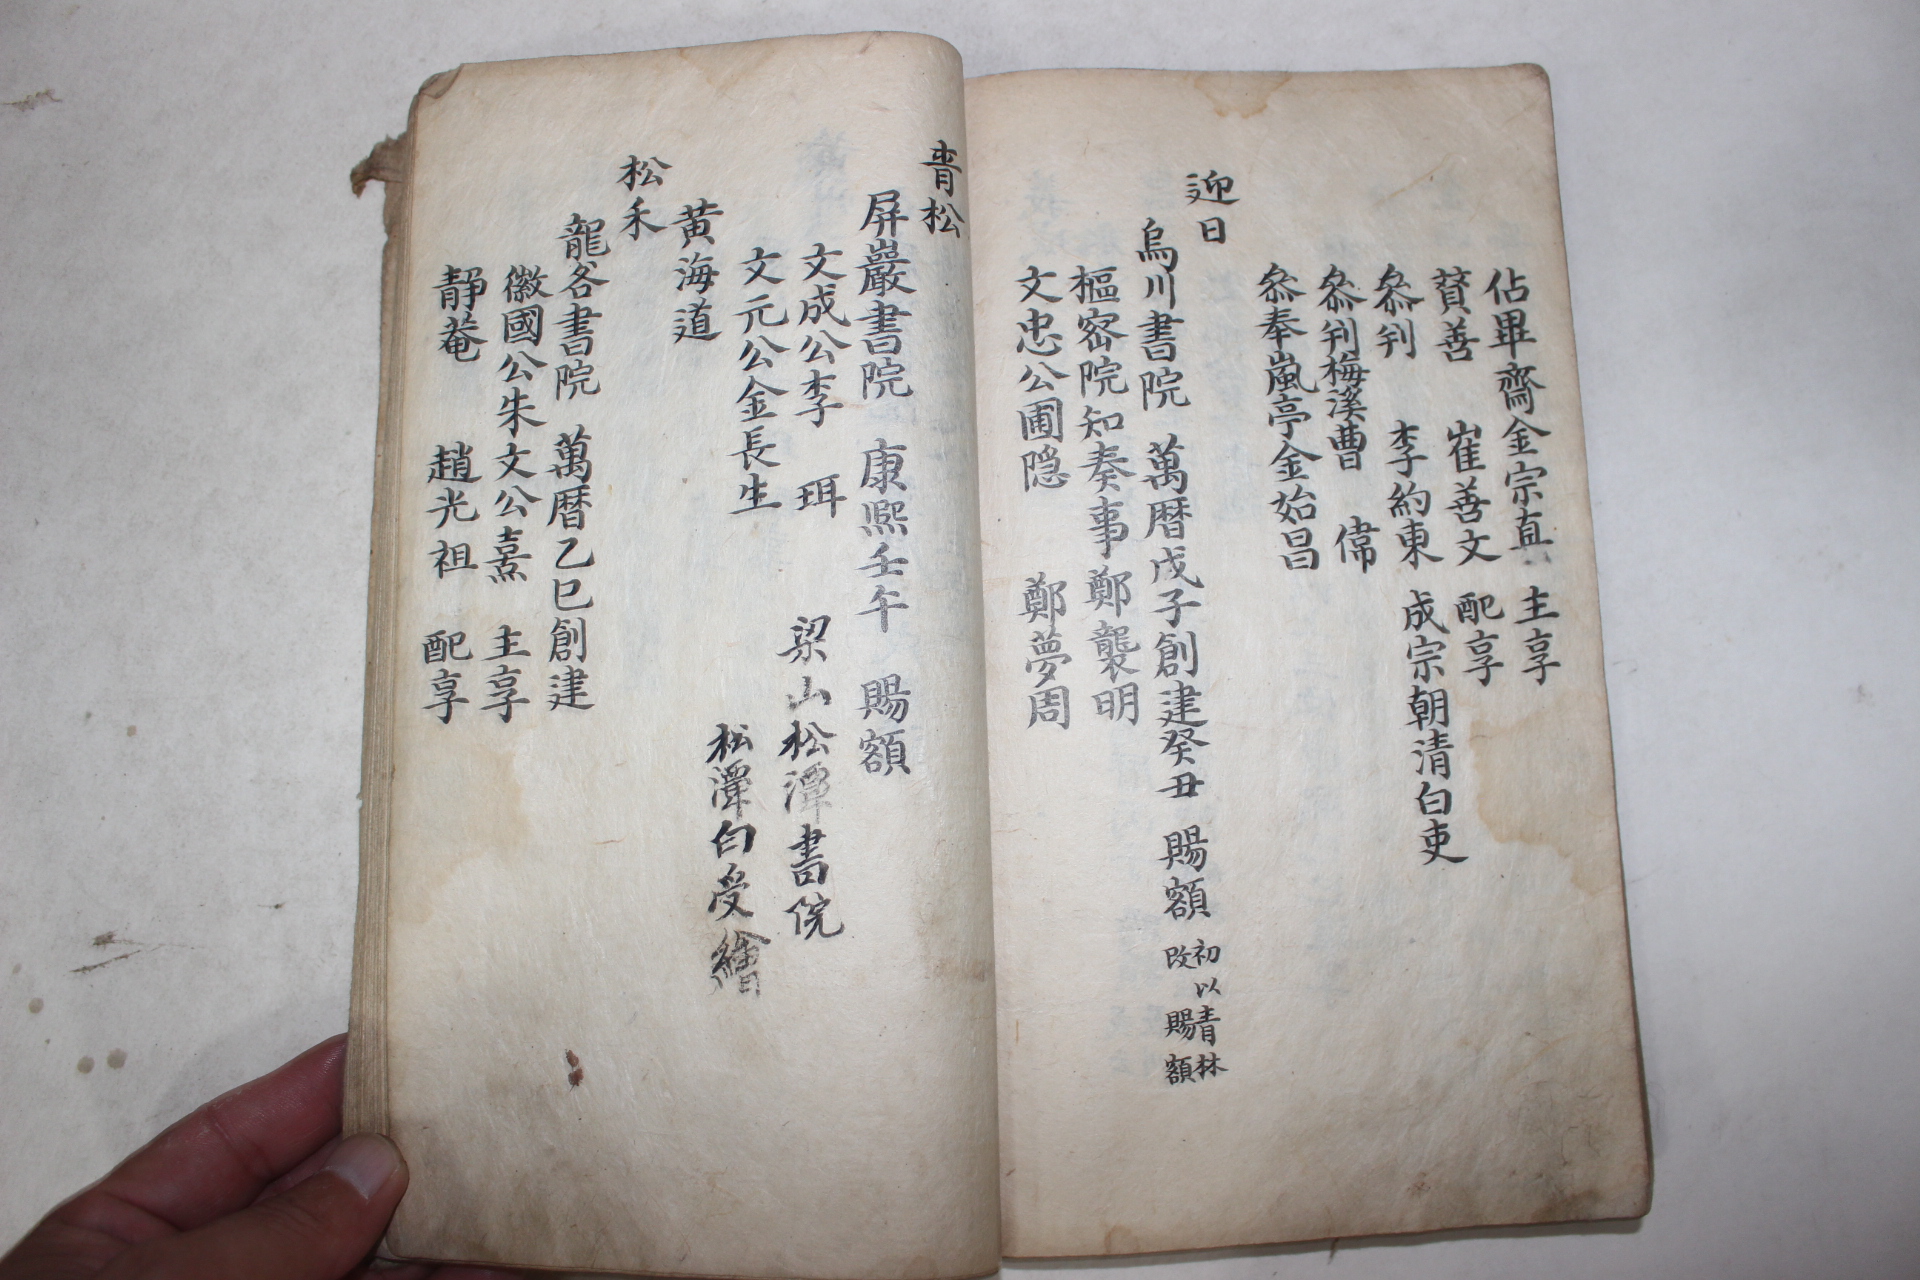 佔畢齋金宗直 主享
賛善 崔善文 配享
叅判 李約東 成宗朝清白吏
叅判梅溪曹 偉
叅奉嵐亭金始昌
迎日
烏川書院 萬曆戊子創建癸丑 賜額 初以青林
改 賜額
樞密院知奏事鄭襲明
文忠公圃隠 鄭夢周
青松
屏巖書院 康熙壬午 賜額
文成公李 珥 梁山松潭書院
文元公金長生 松潭白受繪
黄海道
松禾
龍各書院 萬曆乙巳創建
徽國公朱文公熹 主享
靜菴 趙光祖 配享